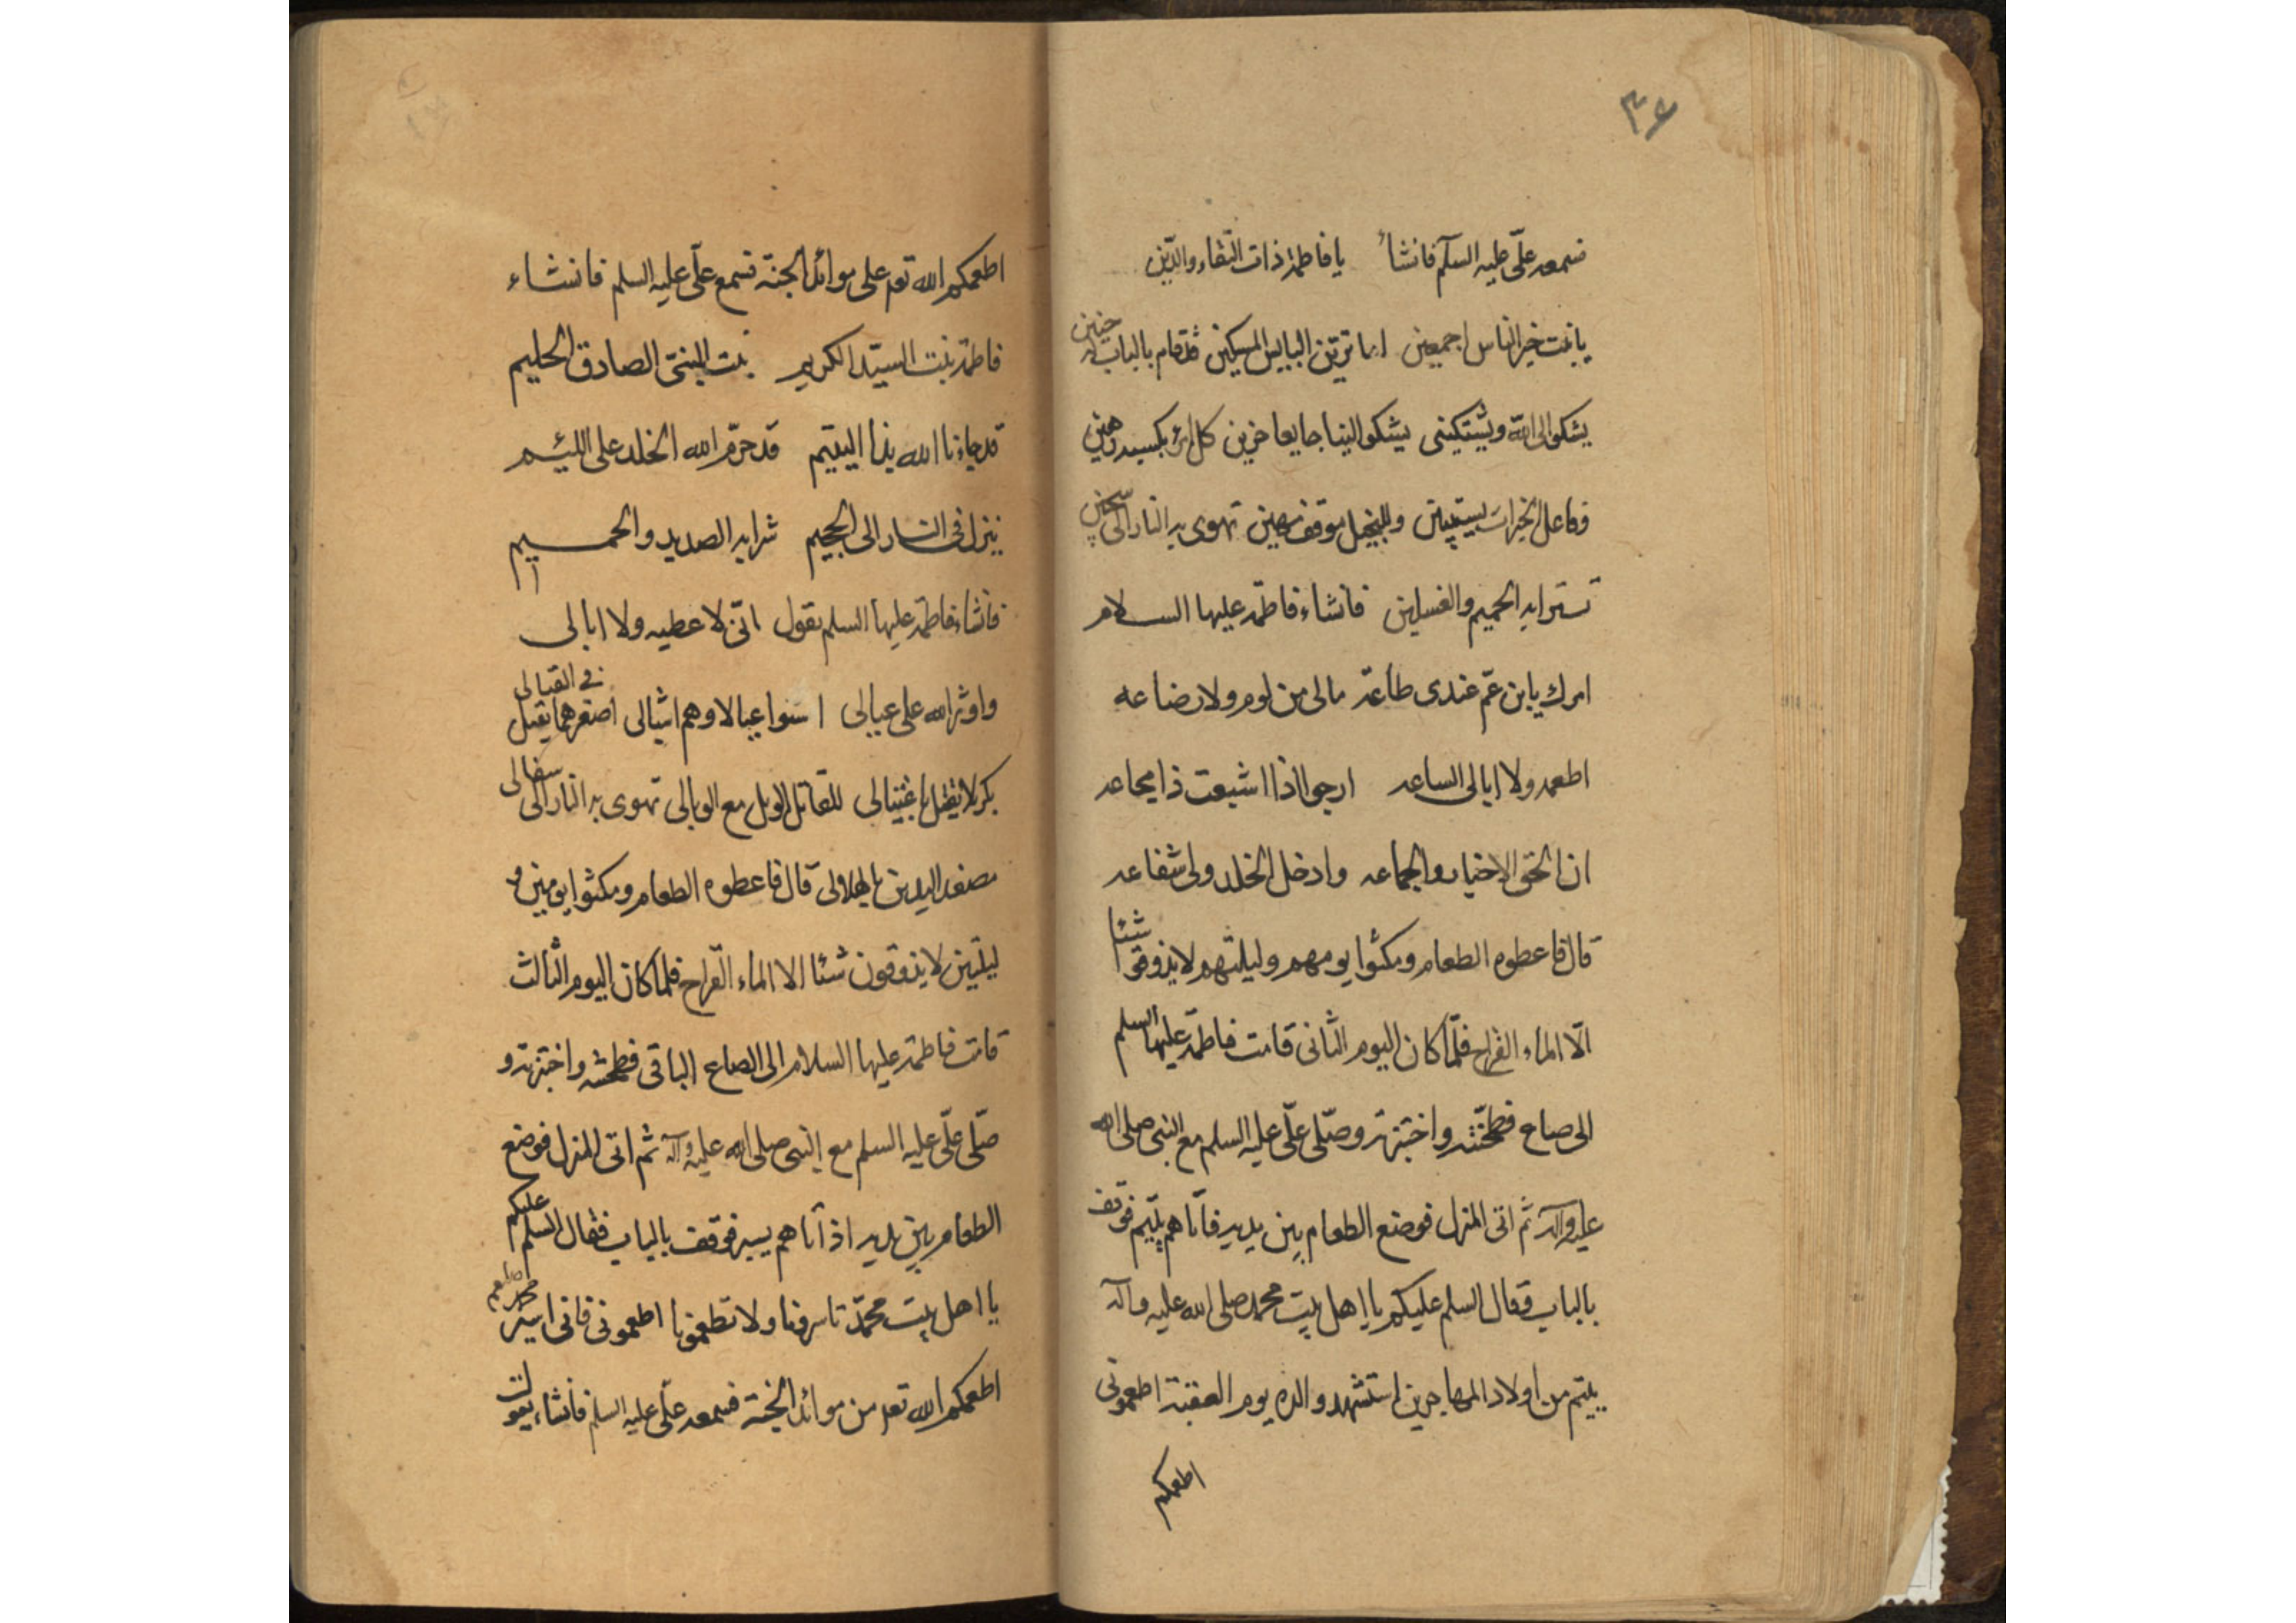 ٣٤
فسمعه علّى عليه السلّم فانشأ يا فاطمة ذات التّقاء والدّين
يا بنت خير الناس اجمعين اما ترين البايس المسكين قد قام بالباب له حنين
يشكو الى الله ويستكينى يشكو الينا جايعا حزين كل امرء بكسبه رهين
وفاعل الخيرات يستبين وللبخيل موقف مهين تهوى به النار الى سجين
شرابه الحميم والغسلين فانشاء فاطمة عليها السلام
امرك يا بن عمّ عندى طاعة مالى من لوم ولا رضاعه
اطعمه ولا ابالى الساعه ارجو اذا اشبعت ذا مجاعه
ان الحق الاخيار والجماعه وادخل الخلد ولى شفاعه
قال فاعطوه الطعام ومكثوا يومهم وليلتهم لا يذوقوا شئا
الّا الماء القراح فلمّا كان اليوم الثّانى قامت فاطمة عليها السلم
الى صاع فطحنته واختبزته وصلّى علّى عليه السلم مع النبى صلى الله
عليه وآله ثم اتى المنزل فوضع الطعام بين يديه فأتاهم يتيم فوقف
بالباب وقال السلم عليكم يا اهل بيت محمد صلى الله عليه وآله
يتيم من اولاد المهاجرين استشهد والده يوم العقبة اطعمونى
اطعمكم
اطعمكم الله تعه على موائد الجنة فسمع علّى عليه السلم فانشاء
فاطمة بنت السيّد الكريم بنت النبىّ الصادق الحليم
قد جاءنا الله بذا اليتيم قد حرّم الله الخلد على اللئيم
ينزل فى النار الى الجحيم شرابه الصديد والحميم
فانشاء فاطمة عليها السلم يقول انّى لا عطيه ولا ابالى
واوثر الله على عيالى اسنوا عيالا وهم اشالى اصغرهما يقتل فى القتالى
بكربلا يقتل باغتيالى للقاتل الويل مع الوبالى تهوى به النار الى سفالى
مصفد اليدين بالهلاولى قال فاعطوه الطعام ومكثوا يومين و
ليلتين لا يذوقون شئا الا الماء القراح فلما كان اليوم الثالث
قامت فاطمة عليها السلام الى الصاع الباقى فطحنته واختبزته و
صلّى علّى عليه السلم مع النبى صلى الله عليه وآله ثم اتى المنزل فوضع
الطعام بين يديه اذ أتاهم يسير فوقف بالباب فقال السلم عليكم
يا اهل بيت محمّد تاسرونا ولا تطعمونا اطعمونى فانى اسير محمد صلعم
اطعمكم الله تعه من موائد الجنة فسمعه علّى عليه السلم فانشاء يقول